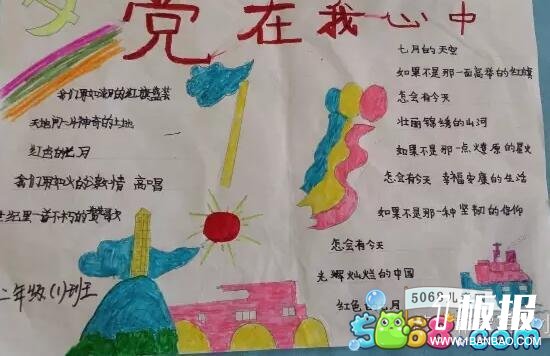 党在我心中
我们用如潮的红旗盛装
天地间一片神奇的土地
红色的七月
我们用如火的激情 高唱
世纪里一首不朽的赞歌
二年级(1)班王
七月的天空
如果不是那一面高举的红旗
怎会有今天
壮丽锦绣的山河
如果不是那一点燎原的星火
怎会有今天 幸福安康的生活
如果不是那一种坚韧的信仰
怎会有今天
光辉灿烂的中国
红色 月
5068儿
板报
5068.com
WWW.1BANBAO.COM